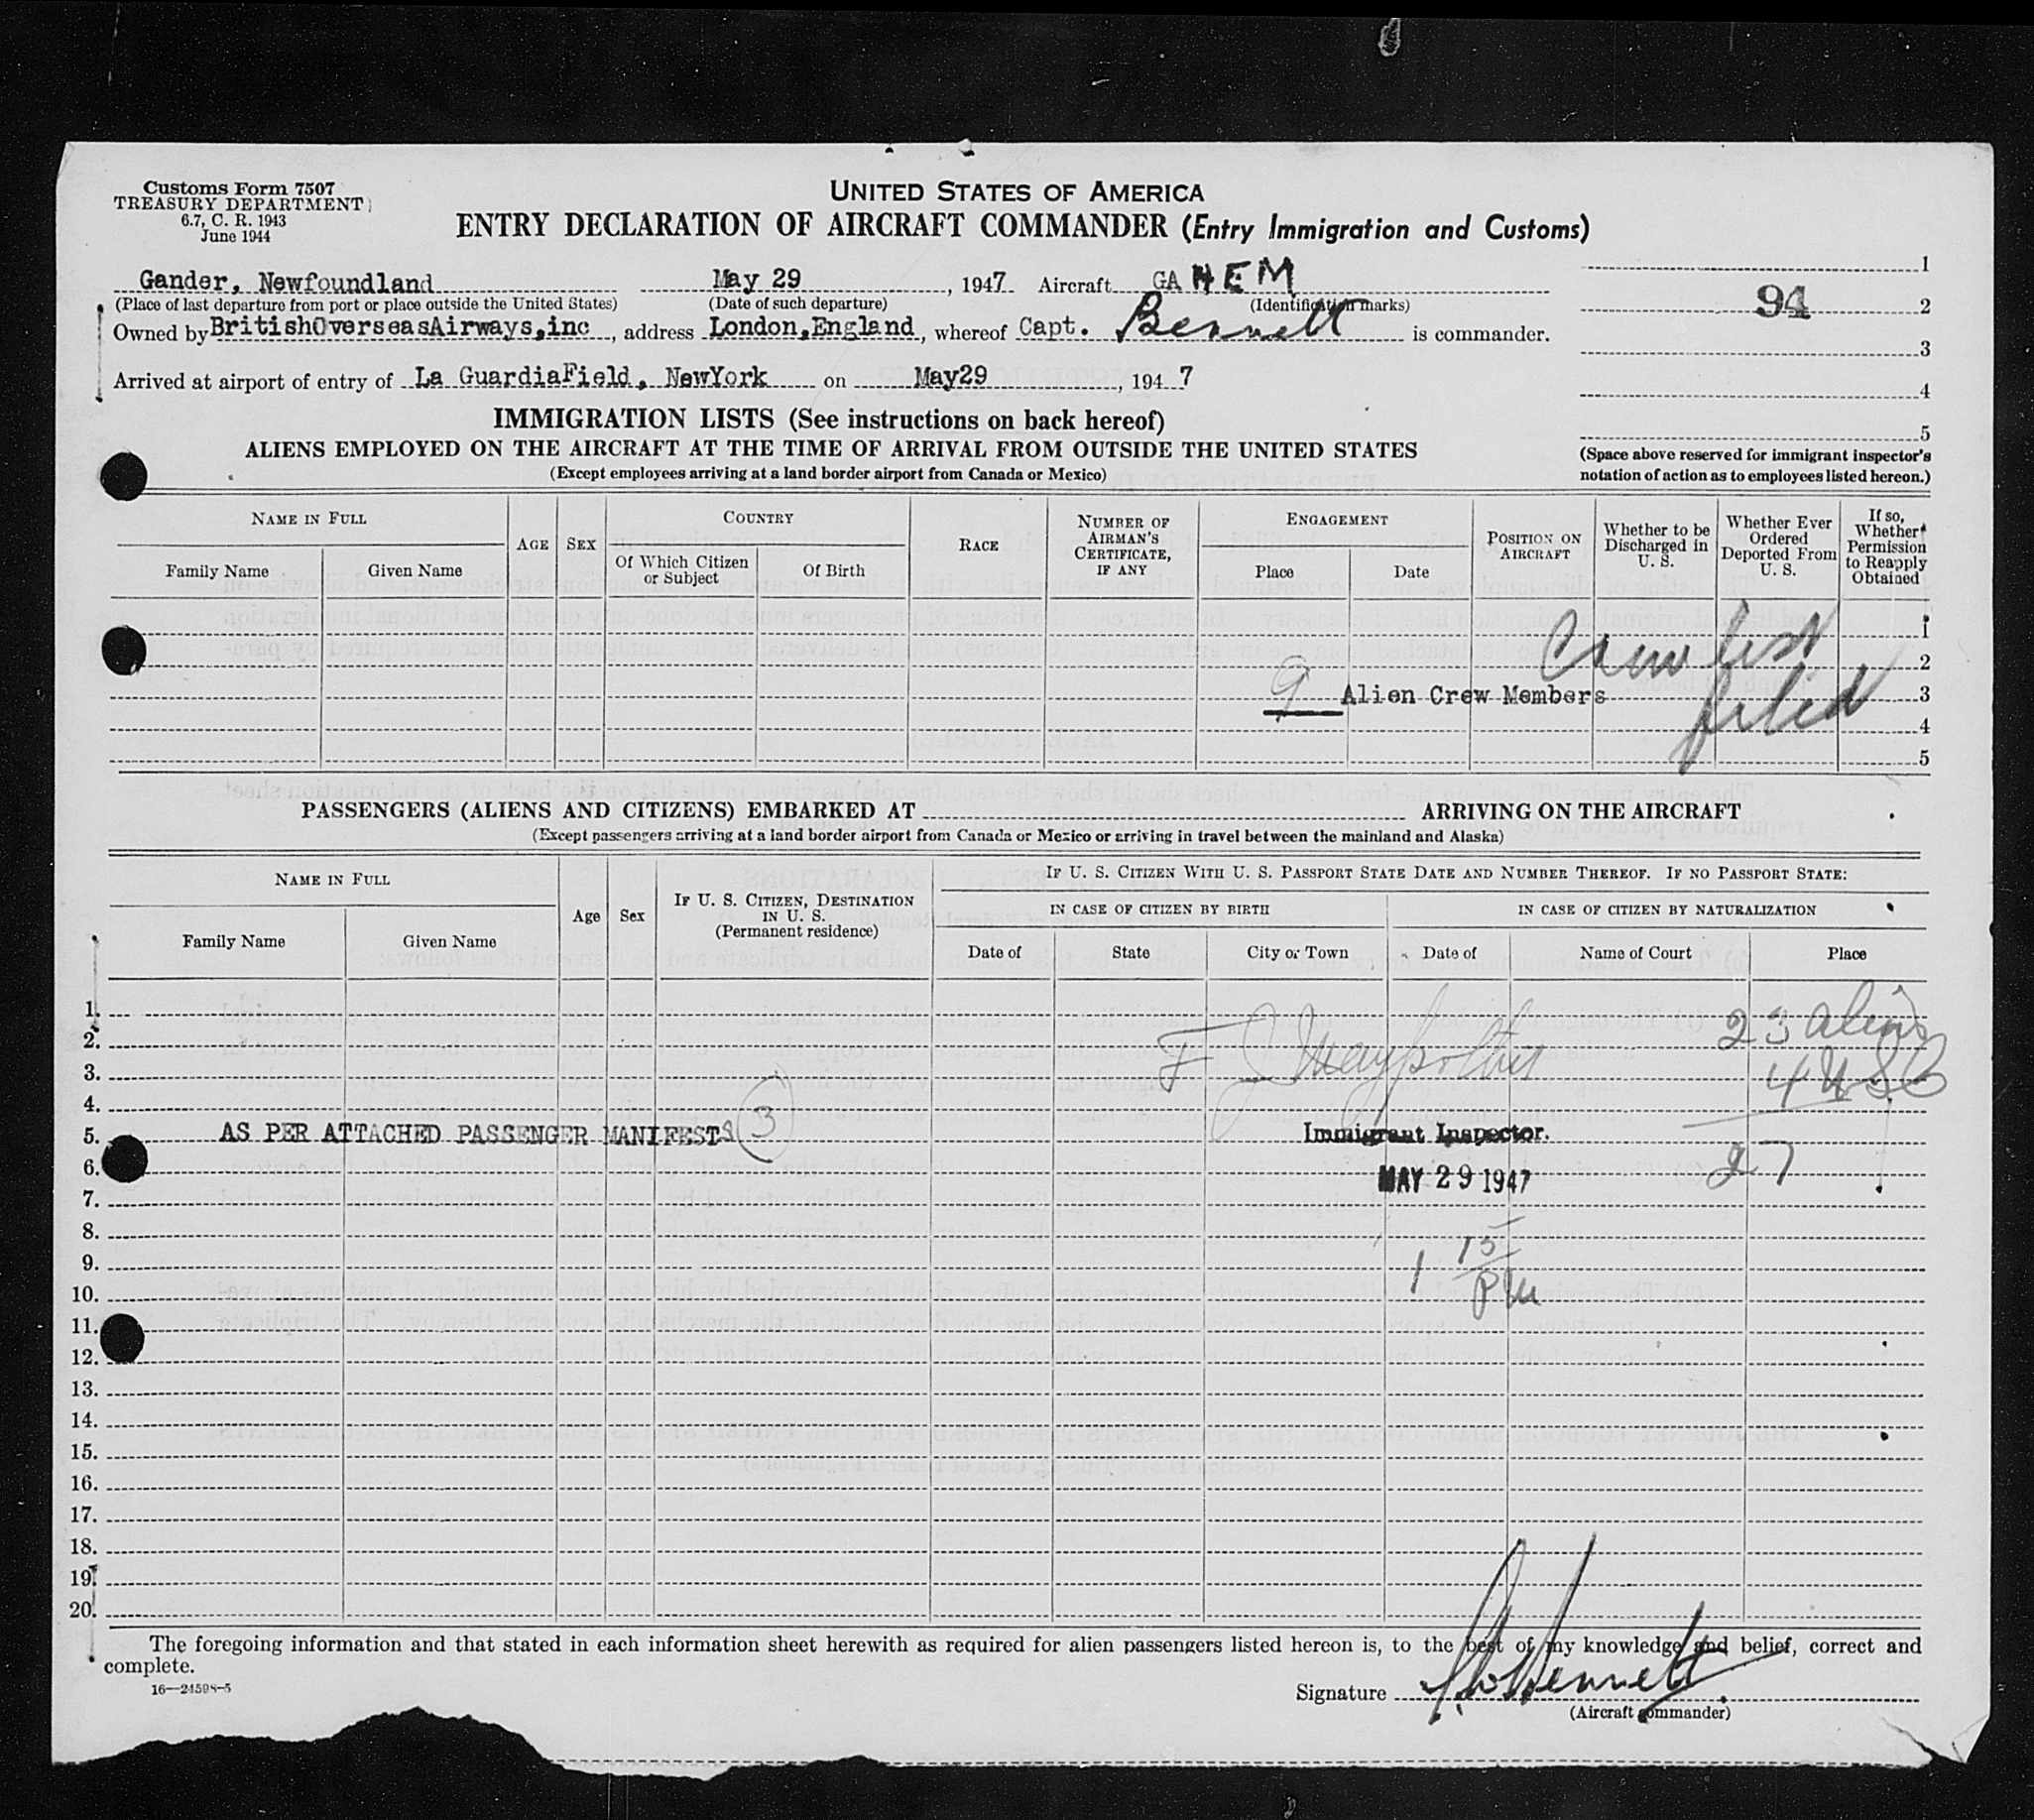 Customs Form 7507
TREASURY DEPARTMENT
6.7, C. R. 1943
June 1944
UNITED STATES OF AMERICA
ENTRY DECLARATION OF AIRCRAFT COMMANDER (Entry Immigration and Customs)
Gander, Newfoundland May 29, 1947 Aircraft GA HEM
(Place of last departure from port or place outside the United States) (Date of such departure) (Identification marks)
Owned by BritishOverseasAirways,inc, address London,England, whereof Capt. Bennett is commander.
Arrived at airport of entry of La GuardiaField, NewYork on May29, 1947
1
94 2
3
4
5
(Space above reserved for immigrant inspector's
notation of action as to employees listed hereon.)
IMMIGRATION LISTS (See instructions on back hereof)
ALIENS EMPLOYED ON THE AIRCRAFT AT THE TIME OF ARRIVAL FROM OUTSIDE THE UNITED STATES
(Except employees arriving at a land border airport from Canada or Mexico)
NAME IN FULL
Family Name
Given Name
AGE
SEX
COUNTRY
Of Which Citizen
or Subject
Of Birth
RACE
NUMBER OF
AIRMAN'S
CERTIFICATE,
IF ANY
ENGAGEMENT
Place
Date
POSITION ON
AIRCRAFT
Whether to be
Discharged in
U. S.
Whether Ever
Ordered
Deported From
U. S.
If so,
Whether
Permission
to Reapply
Obtained
1
Crew list
2
9 Alien Crew Members 3
filed
4
5
PASSENGERS (ALIENS AND CITIZENS) EMBARKED AT ARRIVING ON THE AIRCRAFT
(Except passengers arriving at a land border airport from Canada or Mexico or arriving in travel between the mainland and Alaska)
NAME IN FULL
Family Name
Given Name
Age
Sex
IF U. S. CITIZEN, DESTINATION
IN U. S.
(Permanent residence)
IF U. S. CITIZEN WITH U. S. PASSPORT STATE DATE AND NUMBER THEREOF. IF NO PASSPORT STATE:
IN CASE OF CITIZEN BY BIRTH
IN CASE OF CITIZEN BY NATURALIZATION
Date of
State
City or Town
Date of
Name of Court
Place
1.
2. F 23 aliens
3. 4 USC
4.
5. AS PER ATTACHED PASSENGER MANIFESTS 3 Immigrant Inspector.
6. MAY 29 1947 27
7.
8.
9. 1 15
10. PM
11.
12.
13.
14.
15.
16.
17.
18.
19.
20.
The foregoing information and that stated in each information sheet herewith as required for alien passengers listed hereon is, to the best of my knowledge and belief, correct and
complete.
16—24598-5
Signature Bennett
(Aircraft commander)